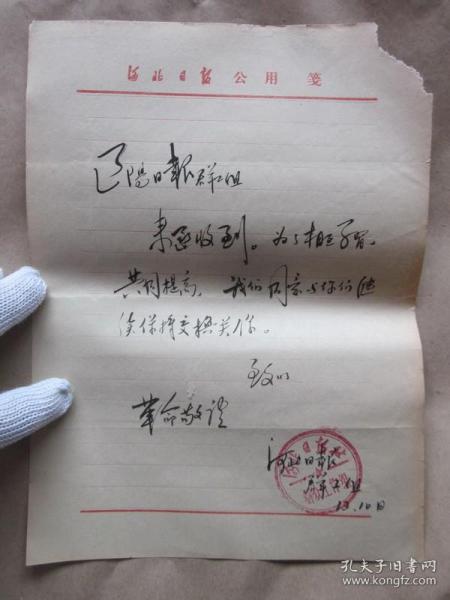 河北日报 公用笺
辽阳日报群工组
来函收到。为了相互学习、
共同提高，我们同意与你们继
续保持交换关系。
致以
革命敬礼
河北日报
群工组
13.10日
孔夫子旧书网
www.kongfz.com